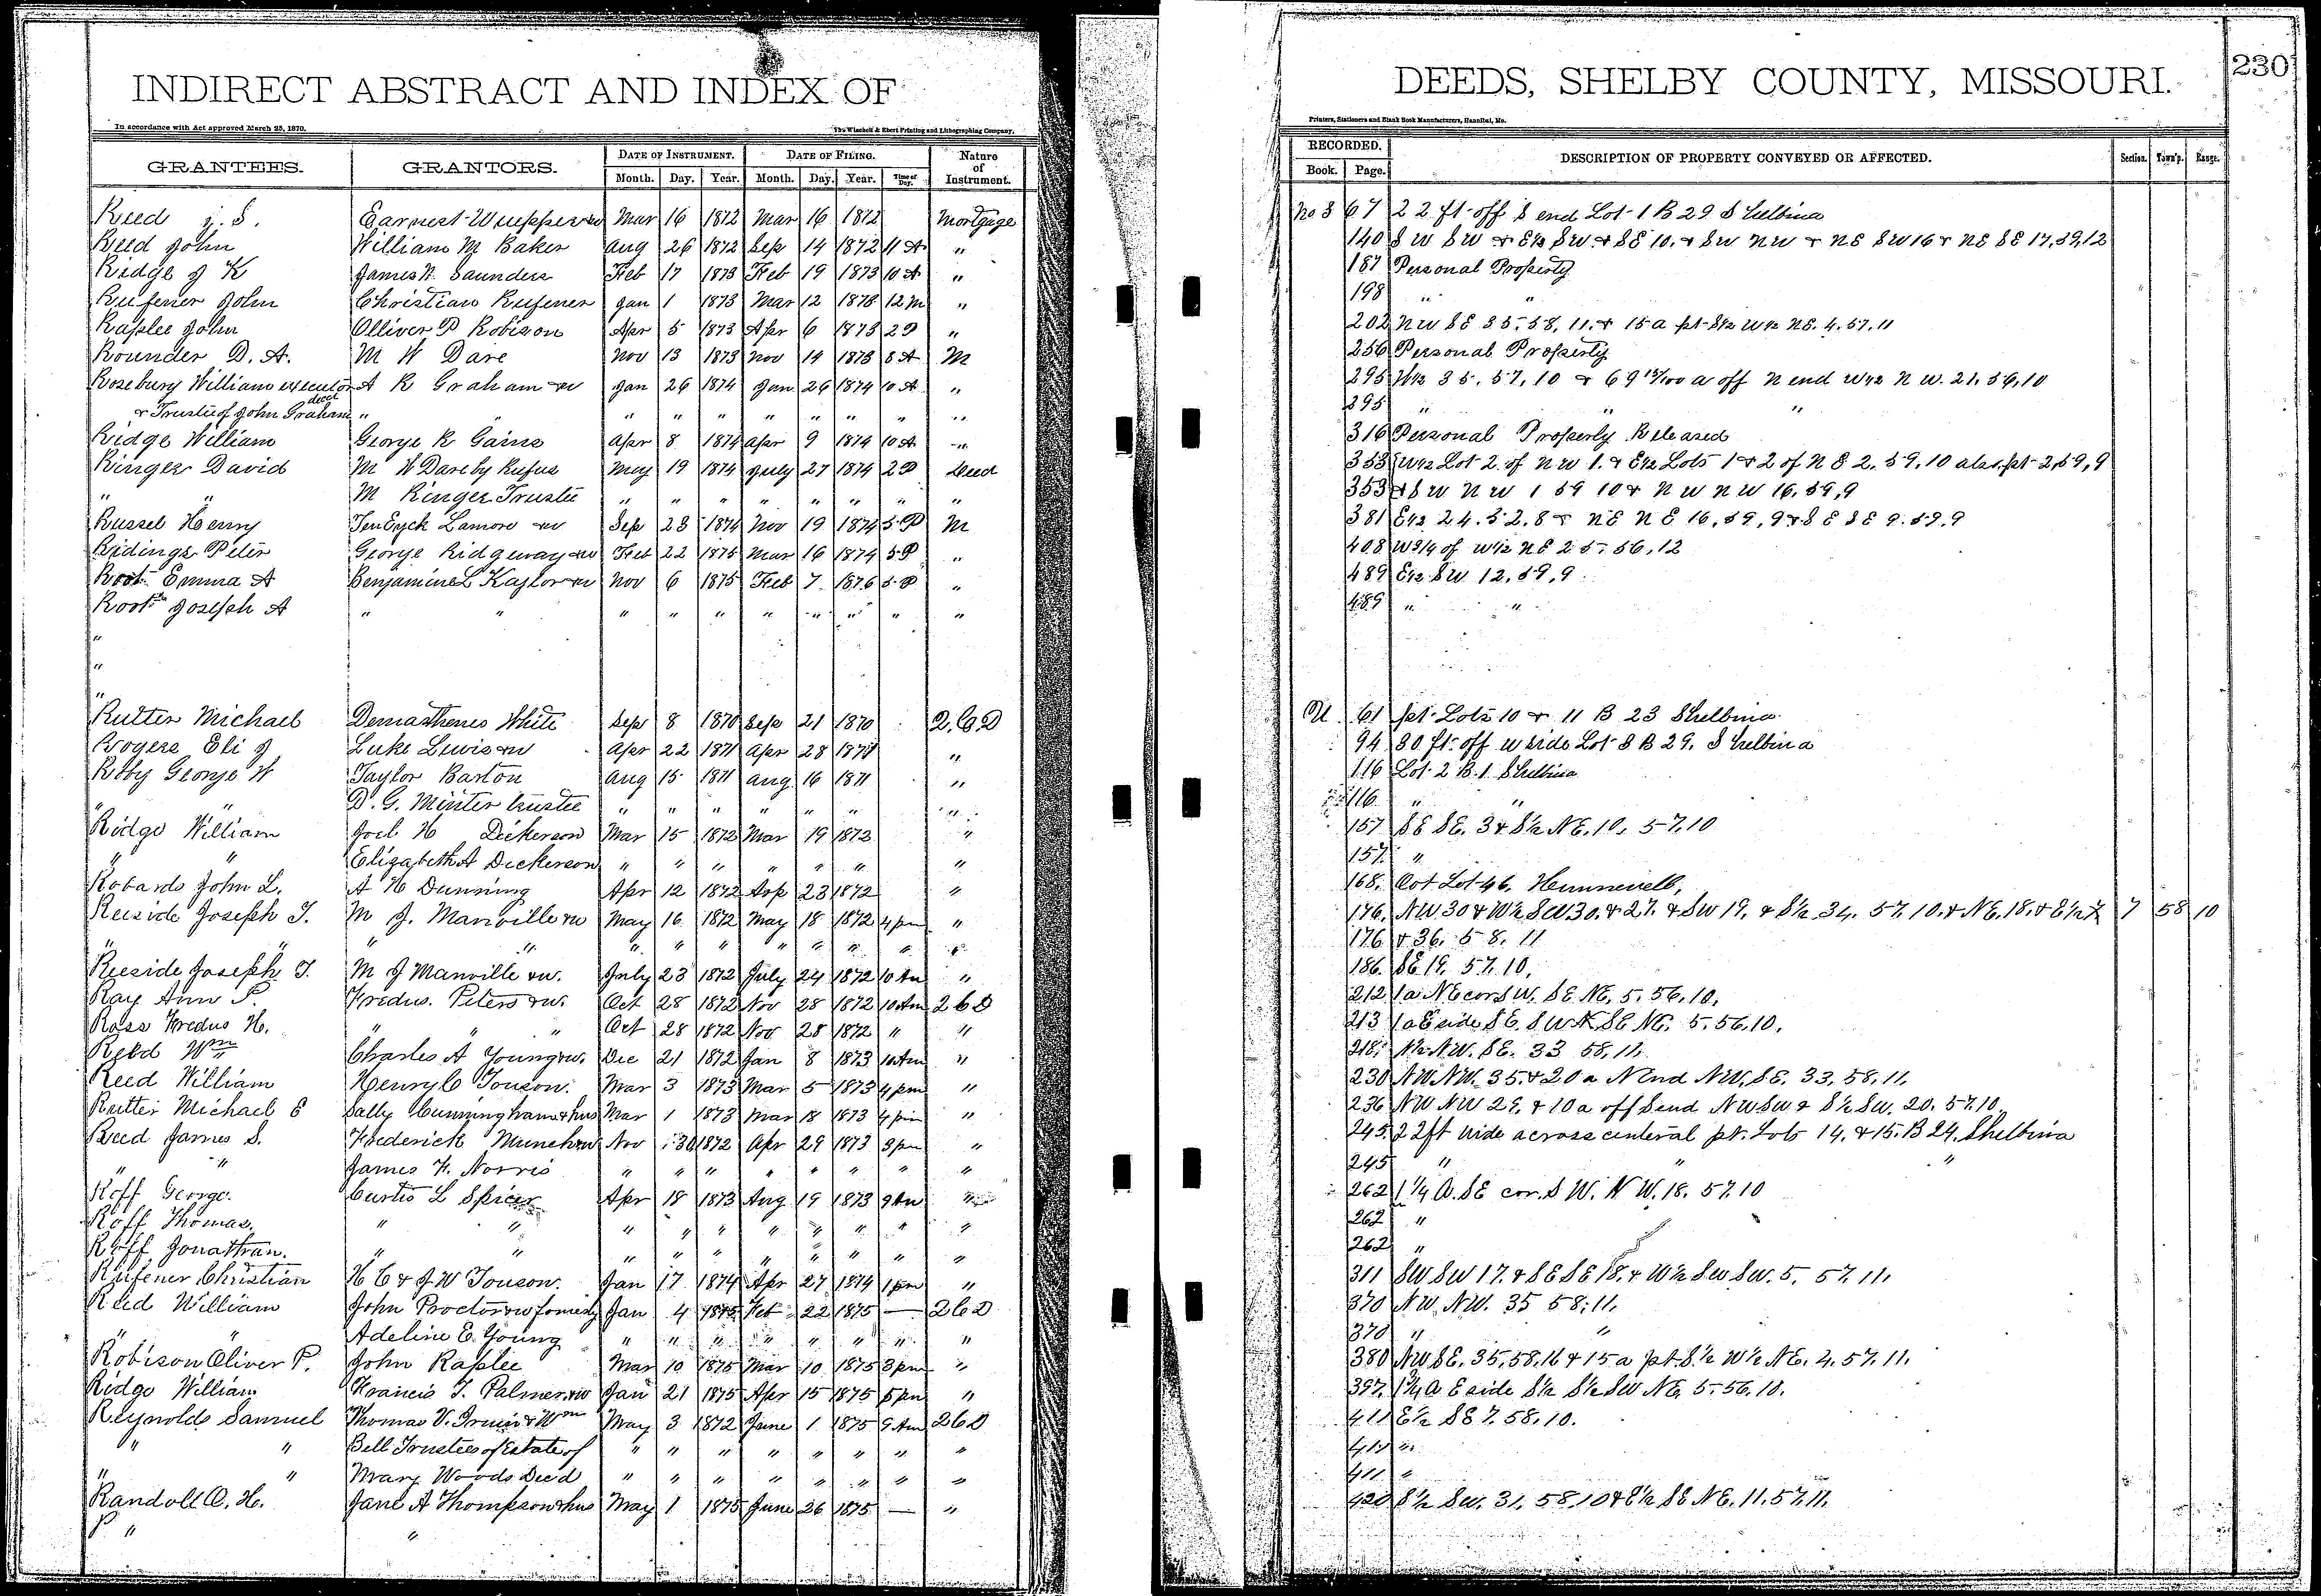 INDIRECT ABSTRACT AND INDEX OF DEEDS, SHELBY COUNTY, MISSOURI. 230
In accordance with Act approved March 25, 1870. The Winchell & Ebert Printing and Lithographing Company, Printers, Stationers and Blank Book Manufacturers, Hannibal, Mo.
GRANTEES. GRANTORS. DATE OF INSTRUMENT. DATE OF FILING. Nature of Instrument. RECORDED. DESCRIPTION OF PROPERTY CONVEYED OR AFFECTED. Section. Town'p. Range.
Month. Day. Year. Month. Day. Year. Time of Day. Book. Page.
Reed J. S. Earnest &w Mar 16 1872 Mar 16 1872 Mortgage No 3 67 22 ft off S end Lot 1 B 29 Shelbina
Reed John William M Baker Aug 26 1872 Sep 14 1872 11 A " 140 SW SW & E½ SW & SE 10. & SW NW & NE SW 16 & NE SE 17, 59, 12
Ridge J K James W. Saunders Feb 17 1873 Feb 19 1873 10 A " 187 Personal Property
Rufener John Christian Rufener Jan 1 1873 Mar 12 1873 12 M " 198 " "
Raplee John Olliver P Robison Apr 5 1873 Apr 6 1873 2 P " 202 NW SE 35, 58, 11. & 15 a pt S½ W½ NE. 4. 57. 11
Rounder D. A. M W Dare Nov 13 1873 Nov 14 1873 8 A M 256 Personal Property
Rosebury William executor A R Graham &w Jan 26 1874 Jan 26 1874 10 A " 295 W½ 35, 57, 10 & 69 13/100 a off N end W½ NW. 21, 56, 10
& Trustee of John Graham decd " " " " " " " " " " 295 " " "
Ridge William George R Gains Apr 8 1874 Apr 9 1874 10 A " 316 Personal Property Released
Ringer David M W Dare by Rufus May 19 1874 July 27 1874 2 P Deed 353 W½ Lot 2 of NW 1. & E½ Lots 1 & 2 of NE 2. 59, 10 also pt 2, 59, 9
" " M Ringer Trustee " " " " " " " " 353 & SW NW 1 59 10 & NW NW 16, 59, 9
Russel Henry TenEyck Lamore &w Sep 23 1874 Nov 19 1874 5 P M 381 E½ 24. 52. 8 & NE NE 16, 59, 9 & SE SE 9. 59. 9
Ridings Peter George Ridgeway &w Feb 22 1875 Mar 16 1874 5 P " 408 W 3/4 of W½ NE 25, 56, 12
Root Emma A Benjamine L Kaylor &w Nov 6 1875 Feb 7 1876 5 P " 489 E½ SW 12, 59, 9
Root Joseph A " " " " " " " " " " 489 " "
"
"
"
Rutter Michael Demasthenes White Sep 8 1870 Sep 21 1870 Q. C. D U 61 pt Lots 10 & 11 B 23 Shelbina
Rogers Eli J Luke Lewis &w Apr 22 1871 Apr 28 1871 " 94 80 ft off W side Lot 8 B 29, Shelbina
Roby George W Taylor Barton Aug 15 1871 Aug 16 1871 " 116 Lot 2 B. 1 Shelbina
" " D. G. Minter trustee " " " " " " " 116 " "
Ridge William Joel H Dickerson Mar 15 1872 Mar 19 1872 " 157 SE SE. 3 & S½ NE. 10, 57, 10
" " Elizabeth A Dickerson " " " " " " " 157. "
Robards John L. A H Dunning Apr 12 1872 Sep 23 1872 " 168. Lot 46, Hunnewell,
Reeside Joseph T. M J. Manville &w May 16 1872 May 18 1872 4 pm " 176. NW 30 & W½ SW 30. & 27. & SW 19. & S½ 34. 57. 10. & NE. 18. & E½ 7 7 58 10
" " " " " " " " " " " " 176 & 36. 58. 11
Reeside Joseph T. M J Manville &w. July 23 1872 July 24 1872 10 Am " 186. SE 19. 57. 10.
Ray Ann P. Fredus. Peters &w. Oct 28 1872 Nov 28 1872 10 Am 2 C D 212 1 a NE cor SW. SE NE. 5. 56. 10.
Ross Fredus H. " " " Oct 28 1872 Nov 28 1872 " " 213 1 a E side SE. SW SE NE. 5. 56. 10.
Reed Wm Charles A Young &w. Dec 21 1872 Jan 8 1873 10 Am " 218. N½ NW. SE. 33 58. 11.
Reed William Henry C Touson. Mar 3 1873 Mar 5 1873 4 pm " 230 NW NW. 35. & 20 a N End NW. SE. 33, 58. 11.
Rutter Michael E Sally Cunningham & hus Mar 1 1873 Mar 18 1873 4 pm " 236 NW NW 29. & 10 a off S end NW SW & S½ SW. 20. 57. 10.
Reed James S. Frederick Munch &w Nov 30 1872 Apr 29 1873 3 pm " 245. 22 ft wide across centeral pt. Lots 14. & 15. B 24. Shelbina
" James F. Norris " " " " " " " " 245 " " "
Roff George. Curtis L Spicer Apr 18 1873 Aug 19 1873 9 Am " 262 1¼ A. SE cor. SW. NW. 18. 57. 10
Roff Thomas. " " " " " " " " " " 262 "
Roff Jonathan. " " " " " " " " " " 262 "
Rufener Christian H C & J W Touson. Jan 17 1874 Apr 27 1874 1 pm " 311 SW SW 17. & SE SE 18. & W½ SW SW. 5. 57. 11.
Reed William John Proctor &w formerly Jan 4 1875 Feb 22 1875 — 2 C D 370 NW NW. 35 58. 11.
" " Adeline E. Young " " " " " " " " 370 " "
Robison Oliver P. John Raplee Mar 10 1875 Mar 10 1875 3 pm " 380 NW SE. 35. 58. 11 & 15 a pt. S½ W½ NE. 4. 57. 11.
Ridge William Francis T. Palmer &w Jan 21 1875 Apr 15 1875 5 pm " 397. 1¼ A E side S½ S½ SW NE. 5. 56. 10.
Reynolds Samuel Thomas V. Irwin & Wm May 3 1872 June 1 1875 9 Am 2 C D 411 E½ SE 7. 58. 10.
" " Bell Trustees of Estate of " " " " " " " " 411 "
" " Mary Woods Dec'd " " " " " " " " 411 "
Randoll H. Jane A Thompson & hus May 1 1875 June 26 1875 — " 420 S½ SW. 31. 58. 10 & E½ SE NE. 11. 57. 11.
" "